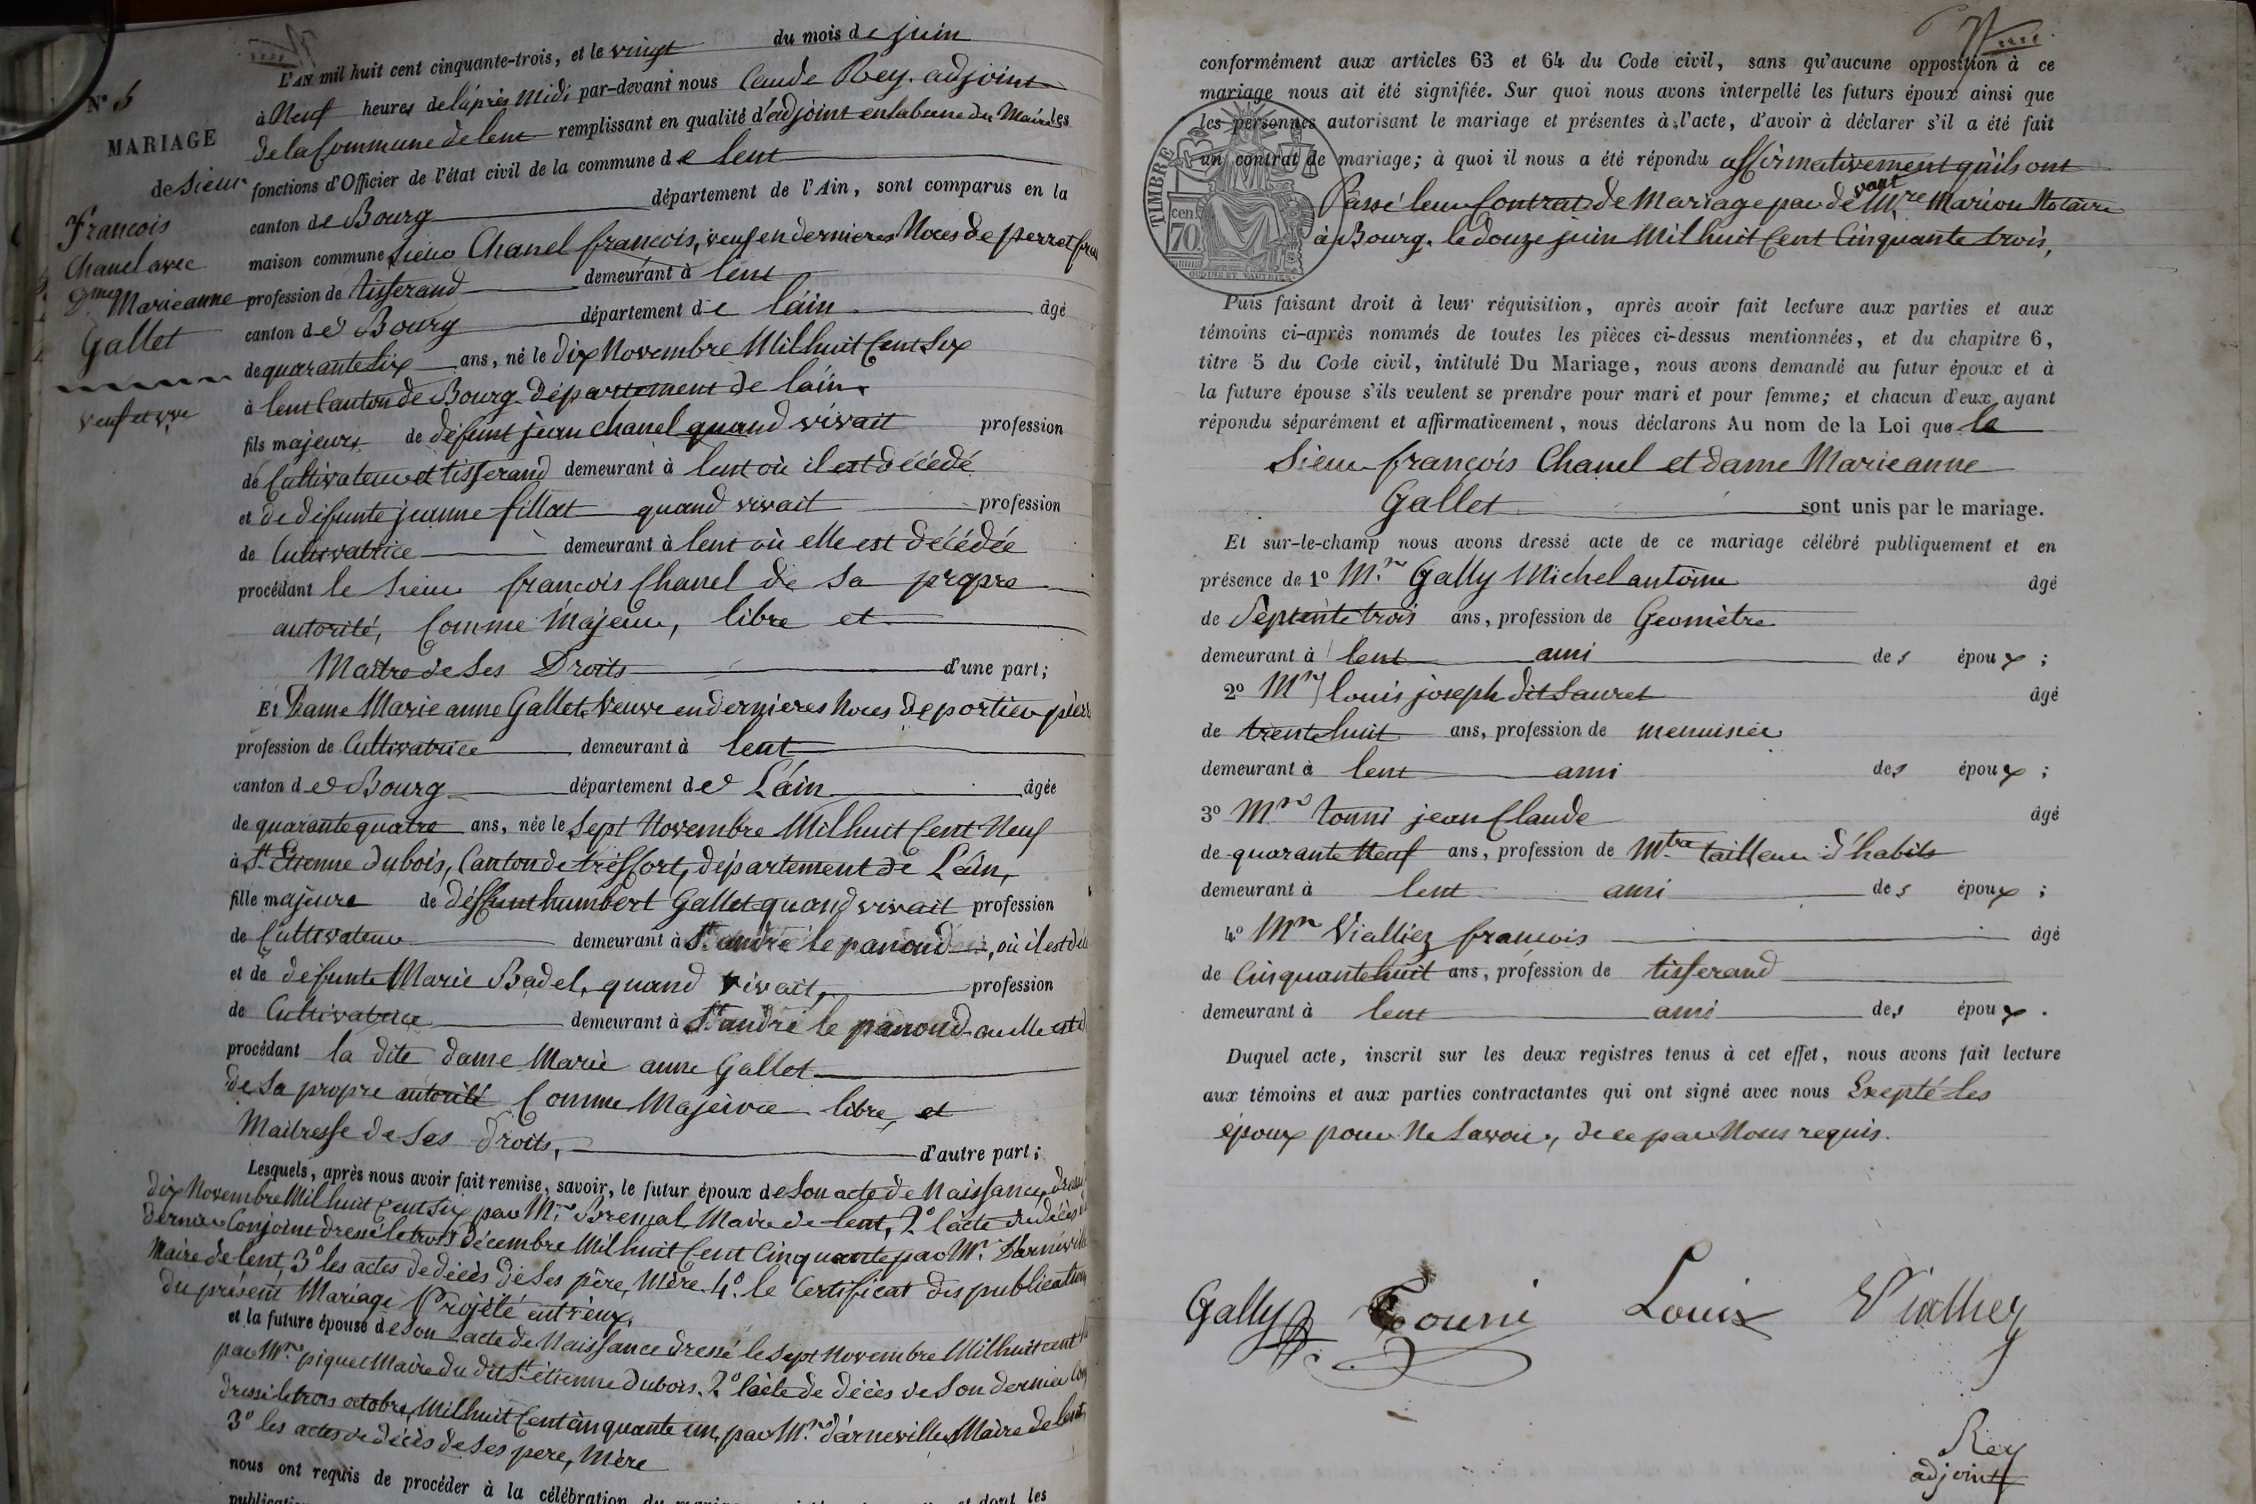 L'AN mil huit cent cinquante-trois, et le vingt du mois de juin
N° 5
à Neuf heures de l'après Midi par-devant nous Claude Rey. adjoint
MARIAGE
de la Commune de lent remplissant en qualité d'adjoint en labsence du Maire les
de Sieur
fonctions d'Officier de l'état civil de la commune de lent
François
canton de Bourg département de l'Ain, sont comparus en la
Chanel avec
maison commune Sieur Chanel françois, veuf en dernieres Noces de perret
Dme Marie anne
profession de tisserand demeurant à lent
Gallet
canton de Bourg département de láin âgé
de quarante Six ans, né le dix Novembre Mil huit Cent Six
veuf et vve
à lent Canton de Bourg département de láin.
fils majeur de défunt jean chanel quand vivait profession
de Cultivateur et tisserand demeurant à lent où il est décédé
et de défunte jeanne fillat quand vivait profession
de Cultivatrice demeurant à lent où elle est décédée
procédant le Sieur françois Chanel de Sa propre
autorité, Comme Majeur, libre et
Maître de Ses Droits d'une part;
Et Dame Marie anne Gallet, Veuve en dernieres Noces de portier
profession de Cultivatrice demeurant à lent
canton de Bourg département de Láin âgée
de quarante quatre ans, née le Sept Novembre Mil huit Cent Neuf
à St Etienne dubois, Canton de tréffort, département de Láin,
fille majeure de déffunt humbert Gallet quand vivait profession
de Cultivateur demeurant à St andré le panoud, où il est
et de défunte Marie Badel, quand vivait, profession
de Cultivatrice demeurant à St andré le panoud ou elle est
procédant la dite dame Marie anne Gallet
de Sa propre autorité Comme Majeure libre, et
Maitresse de Ses droits, d'autre part;
Lesquels, après nous avoir fait remise, savoir, le futur époux de Son acte de Naissance,
dix Novembre Mil huit Cent Six par Mr. Maire de lent, 2° l'acte du décès
dernier Conjoint dressé le trois décembre Mil huit Cent Cinquante par Mr.
Maire de lent, 3° les actes de décès de Ses père, Mère. 4°. le Certificat des publications
du présent Mariage Projété entr'eux,
et la future épouse de Son acte de Naissance dressé le Sept Novembre Mil huit cent
par Mr. piquet Maire du dit St étienne dubois. 2° l'acte de décès de Son dernier
dressé le trois octobre Mil huit Cent Cinquante un, par Mr. d'arneville Maire de lent,
3° les actes de décès de Ses pere, Mère
nous ont requis de procéder à la célébration
conformément aux articles 63 et 64 du Code civil, sans qu'aucune opposition à ce
mariage nous ait été signifiée. Sur quoi nous avons interpellé les futurs époux ainsi que
les personnes autorisant le mariage et présentes à l'acte, d'avoir à déclarer s'il a été fait
un contrat de mariage; à quoi il nous a été répondu affirmativement qu'ils ont
Passé leur Contrat de Mariage par devant Mre Marion Notaire
à Bourg. le douze juin Mil huit Cent Cinquante trois,
TIMBRE
cen
70
Puis faisant droit à leur réquisition, après avoir fait lecture aux parties et aux
témoins ci-après nommés de toutes les pièces ci-dessus mentionnées, et du chapitre 6,
titre 5 du Code civil, intitulé Du Mariage, nous avons demandé au futur époux et à
la future épouse s'ils veulent se prendre pour mari et pour femme; et chacun d'eux ayant
répondu séparément et affirmativement, nous déclarons Au nom de la Loi que le
Sieur françois Chanel et dame Marie anne
Gallet sont unis par le mariage.
Et sur-le-champ nous avons dressé acte de ce mariage célébré publiquement et en
présence de 1° Mr Gally Michel antoine âgé
de Septente trois ans, profession de Geomètre
demeurant à lent ami des époux;
2° Mr louis joseph dit Sauret âgé
de trente huit ans, profession de menuisier
demeurant à lent ami des époux;
3° Mr touni jean Claude âgé
de quarante Neuf ans, profession de Mtre tailleur d'habits
demeurant à lent ami des époux;
4° Mr Vialliez francois âgé
de Cinquante huit ans, profession de tisserand
demeurant à lent ami des époux.
Duquel acte, inscrit sur les deux registres tenus à cet effet, nous avons fait lecture
aux témoins et aux parties contractantes qui ont signé avec nous Exepté les
époux pour Ne Savoir, de ce par Nous requis.
Gally Touni Louis Vialliez
Rey
adjoint